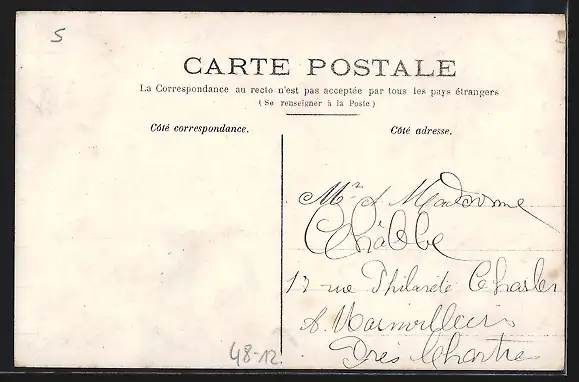 5
CARTE POSTALE
La Correspondance au recto n'est pas acceptée par tous les pays étrangers
(Se renseigner à la Poste)
Côté correspondance.
Côté adresse.
Mr & Madame
Châbbe
rue Philarète Chasles
A Mainvilliers
Près Chartres
48-12